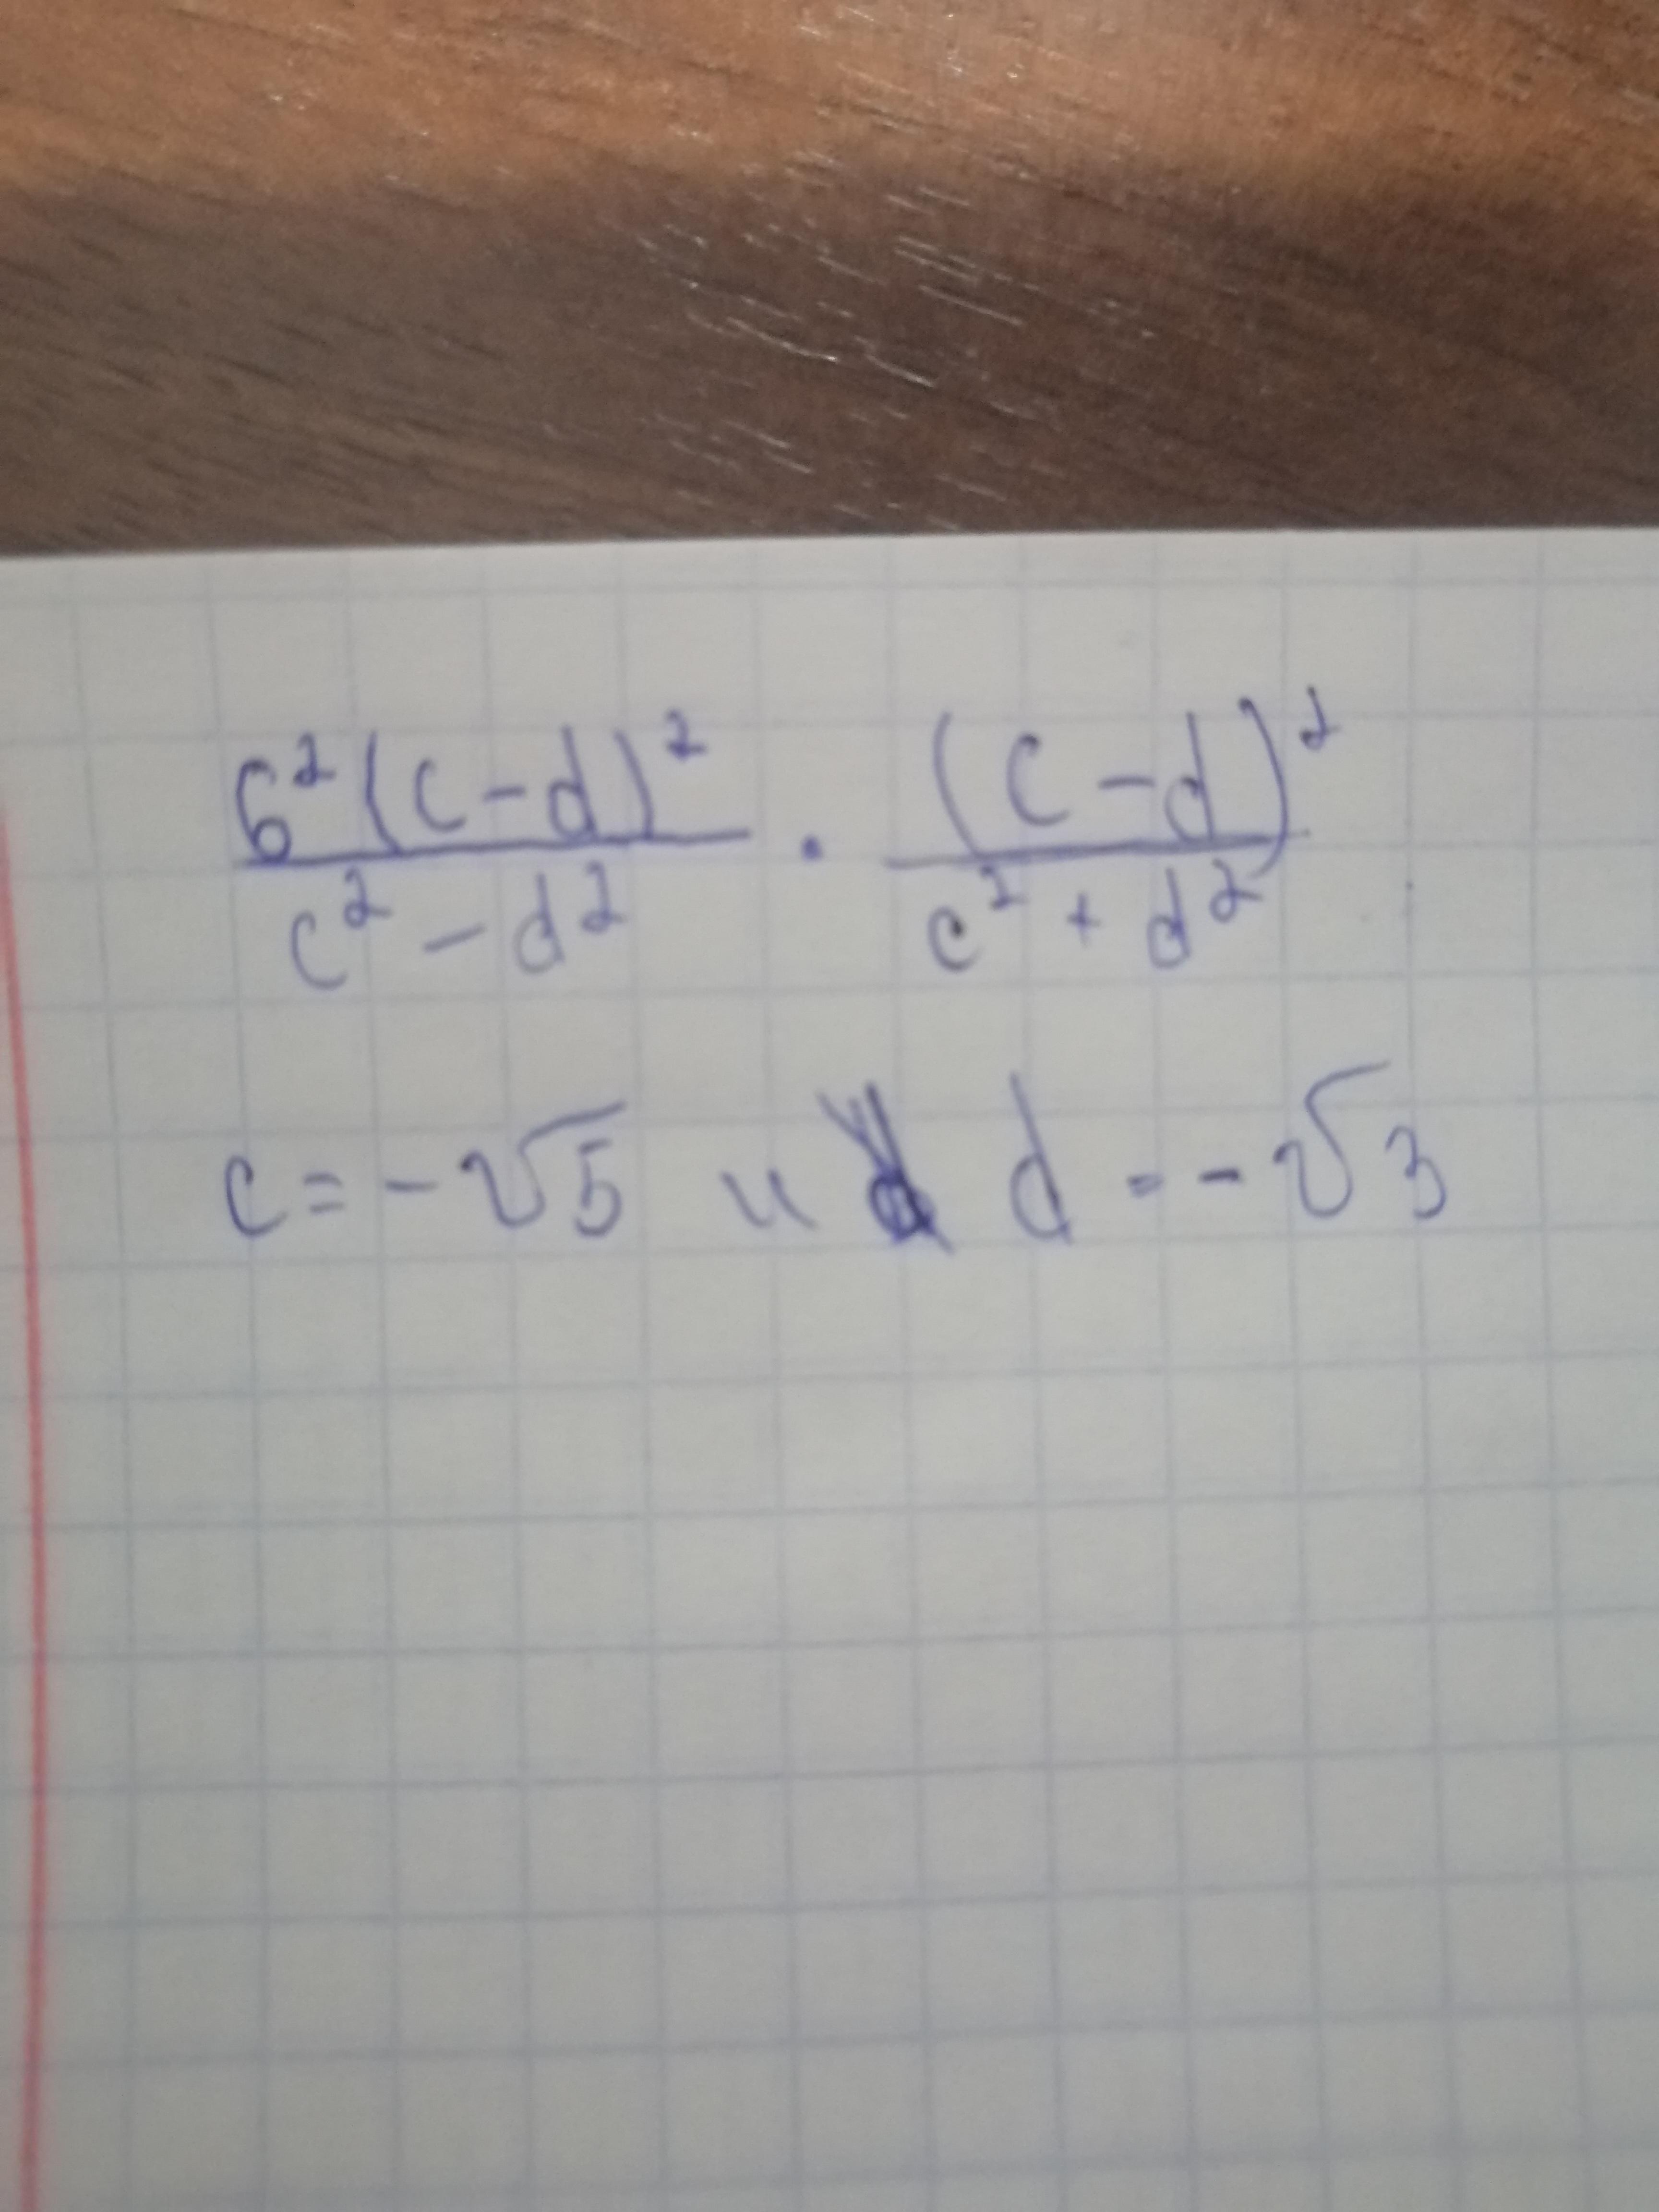 6²(c-d)²/(c²-d²) · (c-d)²/(c²+d²)
c=-√5 и d=-√3